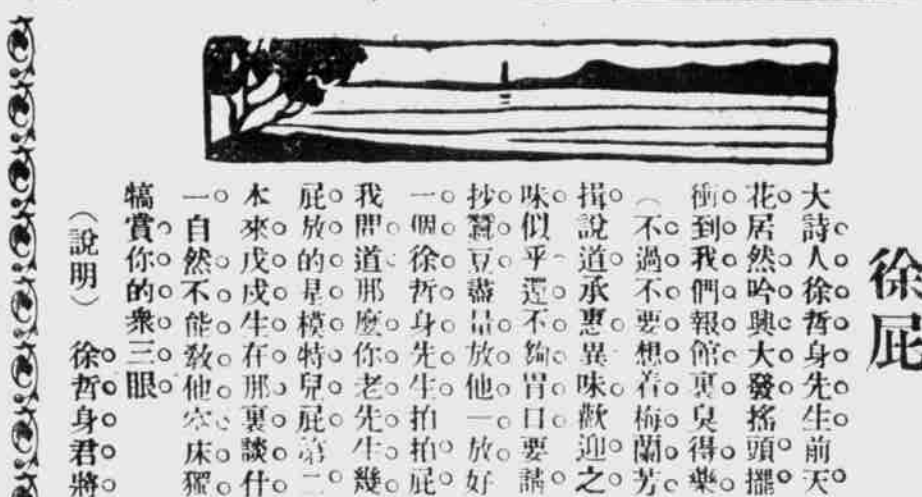 徐屁
大詩人徐哲身先生前天
花居然吟興大發搖頭擺
衝到我們報館裏臭得樂
（不過不要想着梅蘭芳
揖說道承惠異味歡迎之
味似乎還不夠胃口要請
抄蠶豆盡量放他一放好
一個徐哲身先生拍拍屁
我問道那麼你老先生幾
屁放的是模特兒屁第二
本來戌戌生在那裏談什
一自然不能教他空床獨
犒賞你的衆三眼
（說明）　徐哲身君將